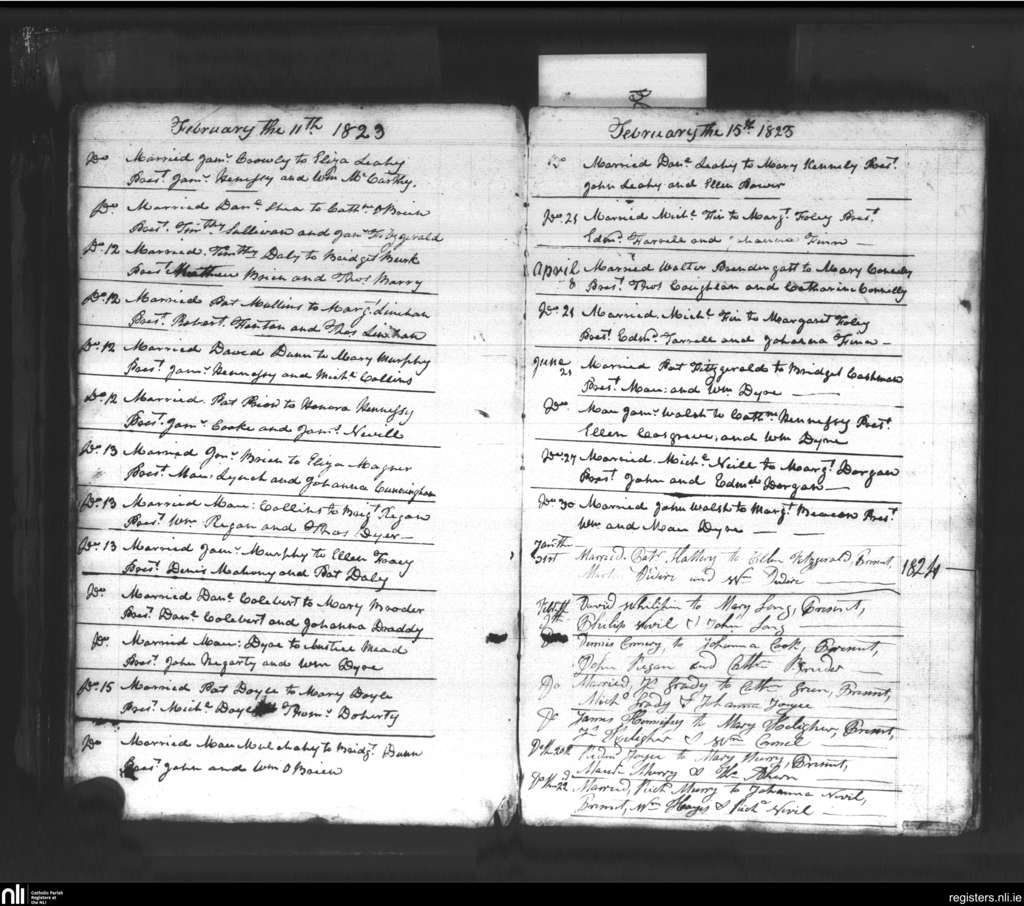 February the 11th 1823
Do Married Jams. Crowly to Eliza Leahy
Prest. Jams. Henessy and Wm McCarthy.
Do Married Danl. Shea to Cathn. OBrien
Prest. Timthy Sullivan and Jams Fitzgerald
Do. 12 Married. Timthy Daly to Bridget Burk
Prest. Mathew Brien and Thos Barry
Do. 12 Married Pat Mullins to Margt. Linehan
Prest. Robert. Fenton and Thos Linehan
Do. 12 Married David Dunn to Mary Murphy
Prest. Jams. Hennessy and Michl. Collins
Do. 12 Married. Pat Brien to Honora Hennessy
Prest. Jams. Cooke and Jams. Nevill
Do. 13 Married Jons. Brien to Eliza Magner
Prest. Mau: Lynch and Johanna Cunningham
Do. 13 Married Mau: Collins to Bridgt. Regan
Prest. Wm. Regan and Thos Dyer
Do. 13 Married Jams. Murphy to Ellen Tracy
Prest. Denis Mahony and Pat Daly
Do. Married Danl. Colebert to Mary Broder
Prest. Danl. Colebert and Johanna Draddy
Do. Married Mau: Dyre to Anstice Mead
Prest. John Hegarty and Wm Dyre
Do. 15 Married Pat Doyle to Mary Doyle
Prest. Michl. Doyle Thoms. Doherty
Do Married Mau Mulcahy to Bridgt. Dunn
Prest. John and Wm O Brien
February the 15th. 1823
Do Married Danl. Leahy to Mary Kennely Prest.
John Leahy and Ellen Power
Do. 21 Married Michl. Fin to Margt. Foley Prest.
Edmd. Farrell and Finn
April 8 Married Walter Prendergatt to Mary Connelly
Prest. Thos Coughlan and Catharin Connelly
Do. 21 Married. Michl. Fin to Margaret Foley
Prest. Edmd. Farrell and Johanna Finn
June 21 Married Pat Fitzgerald to Bridget Cashman
Prest. Mau: and Wm Dyre
Do. Mau Jams. Walsh to Cathn. Hennessy Prest.
Ellen Cosgrave, and Wm Dyre
Do. 27 Married. Michl. Neill to Margt. Dorgan
Prest. John and Edmd. Dorgan
Do. 30 Married John Walsh to Margt. Beacon Prest.
Wm and Mau Dyre
Jan.th 31st Married, Patk Flattery to Ellen Fitzgerald, Present,
and Wm 1824
David Philipin to Mary Long, Present,
Philip Nevil & John Long
Dennis to Johanna Cook, Present,
John Regan and Cathn
Do Married, Grady to Cathn Green, Present,
Michl Grady & Johanna Joyce
Do James Hennessy to Mary Kelegher, Present,
Jas Kelegher & Wm
20th Joyce to Mary Murry, Present,
Murry & Ahern
22d Married, Richd Murry to Johanna Nevil,
Present, Wm Hayes & Richd Nevil
nli Catholic Parish
Registers at
the NLI
registers.nli.ie